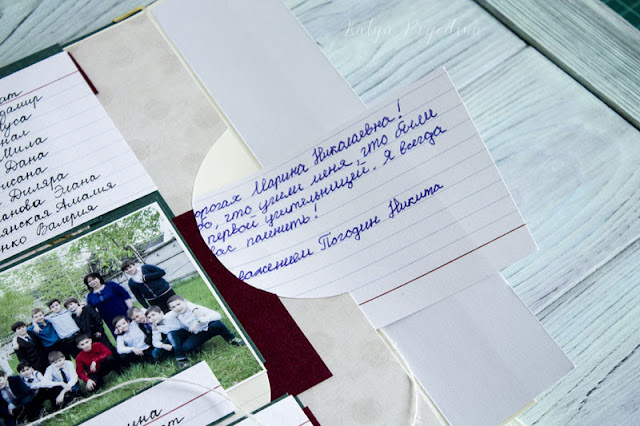 Katya Pogodina
ат
дамир
уса
нал
Мила
Дана
исана
Диляра
анова Элана
янская Амалия
нко Валерия
орогая Марина Николаевна!
бо, что учили меня, что были
первой учительницей. Я всегда
вас помнить!
важением Погодин Никита